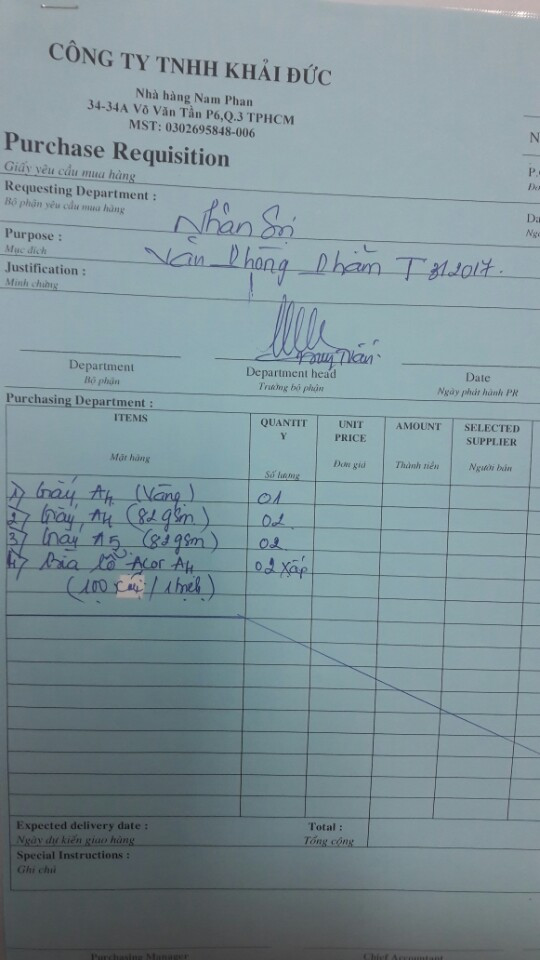 CÔNG TY TNHH KHẢI ĐỨC
Nhà hàng Nam Phan
34-34A Võ Văn Tần P6,Q.3 TPHCM
MST: 0302695848-006
Purchase Requisition
Giấy yêu cầu mua hàng
Requesting Department : Nhân Sự
Bộ phận yêu cầu mua hàng
Purpose : Văn Phòng Phẩm T 3/2017.
Mục đích
Justification :
Minh chứng
Department Department head Date
Bộ phận Trưởng bộ phận Ngày phát hành PR
Purchasing Department :
ITEMS QUANTIT Y UNIT PRICE AMOUNT SELECTED SUPPLIER
Mặt hàng Số lượng Đơn giá Thành tiền Người bán
1) Giấy A4 (Vàng) 01
2) Giấy A4 (82gsm) 02
3) Giấy A5 (82gsm) 02
4) Bìa lỗ Acor A4 02 xấp
(100 cái / 1 bịch)
Expected delivery date : Total :
Ngày dự kiến giao hàng Tổng cộng
Special Instructions :
Ghi chú
Purchasing Manager Chief Accountant